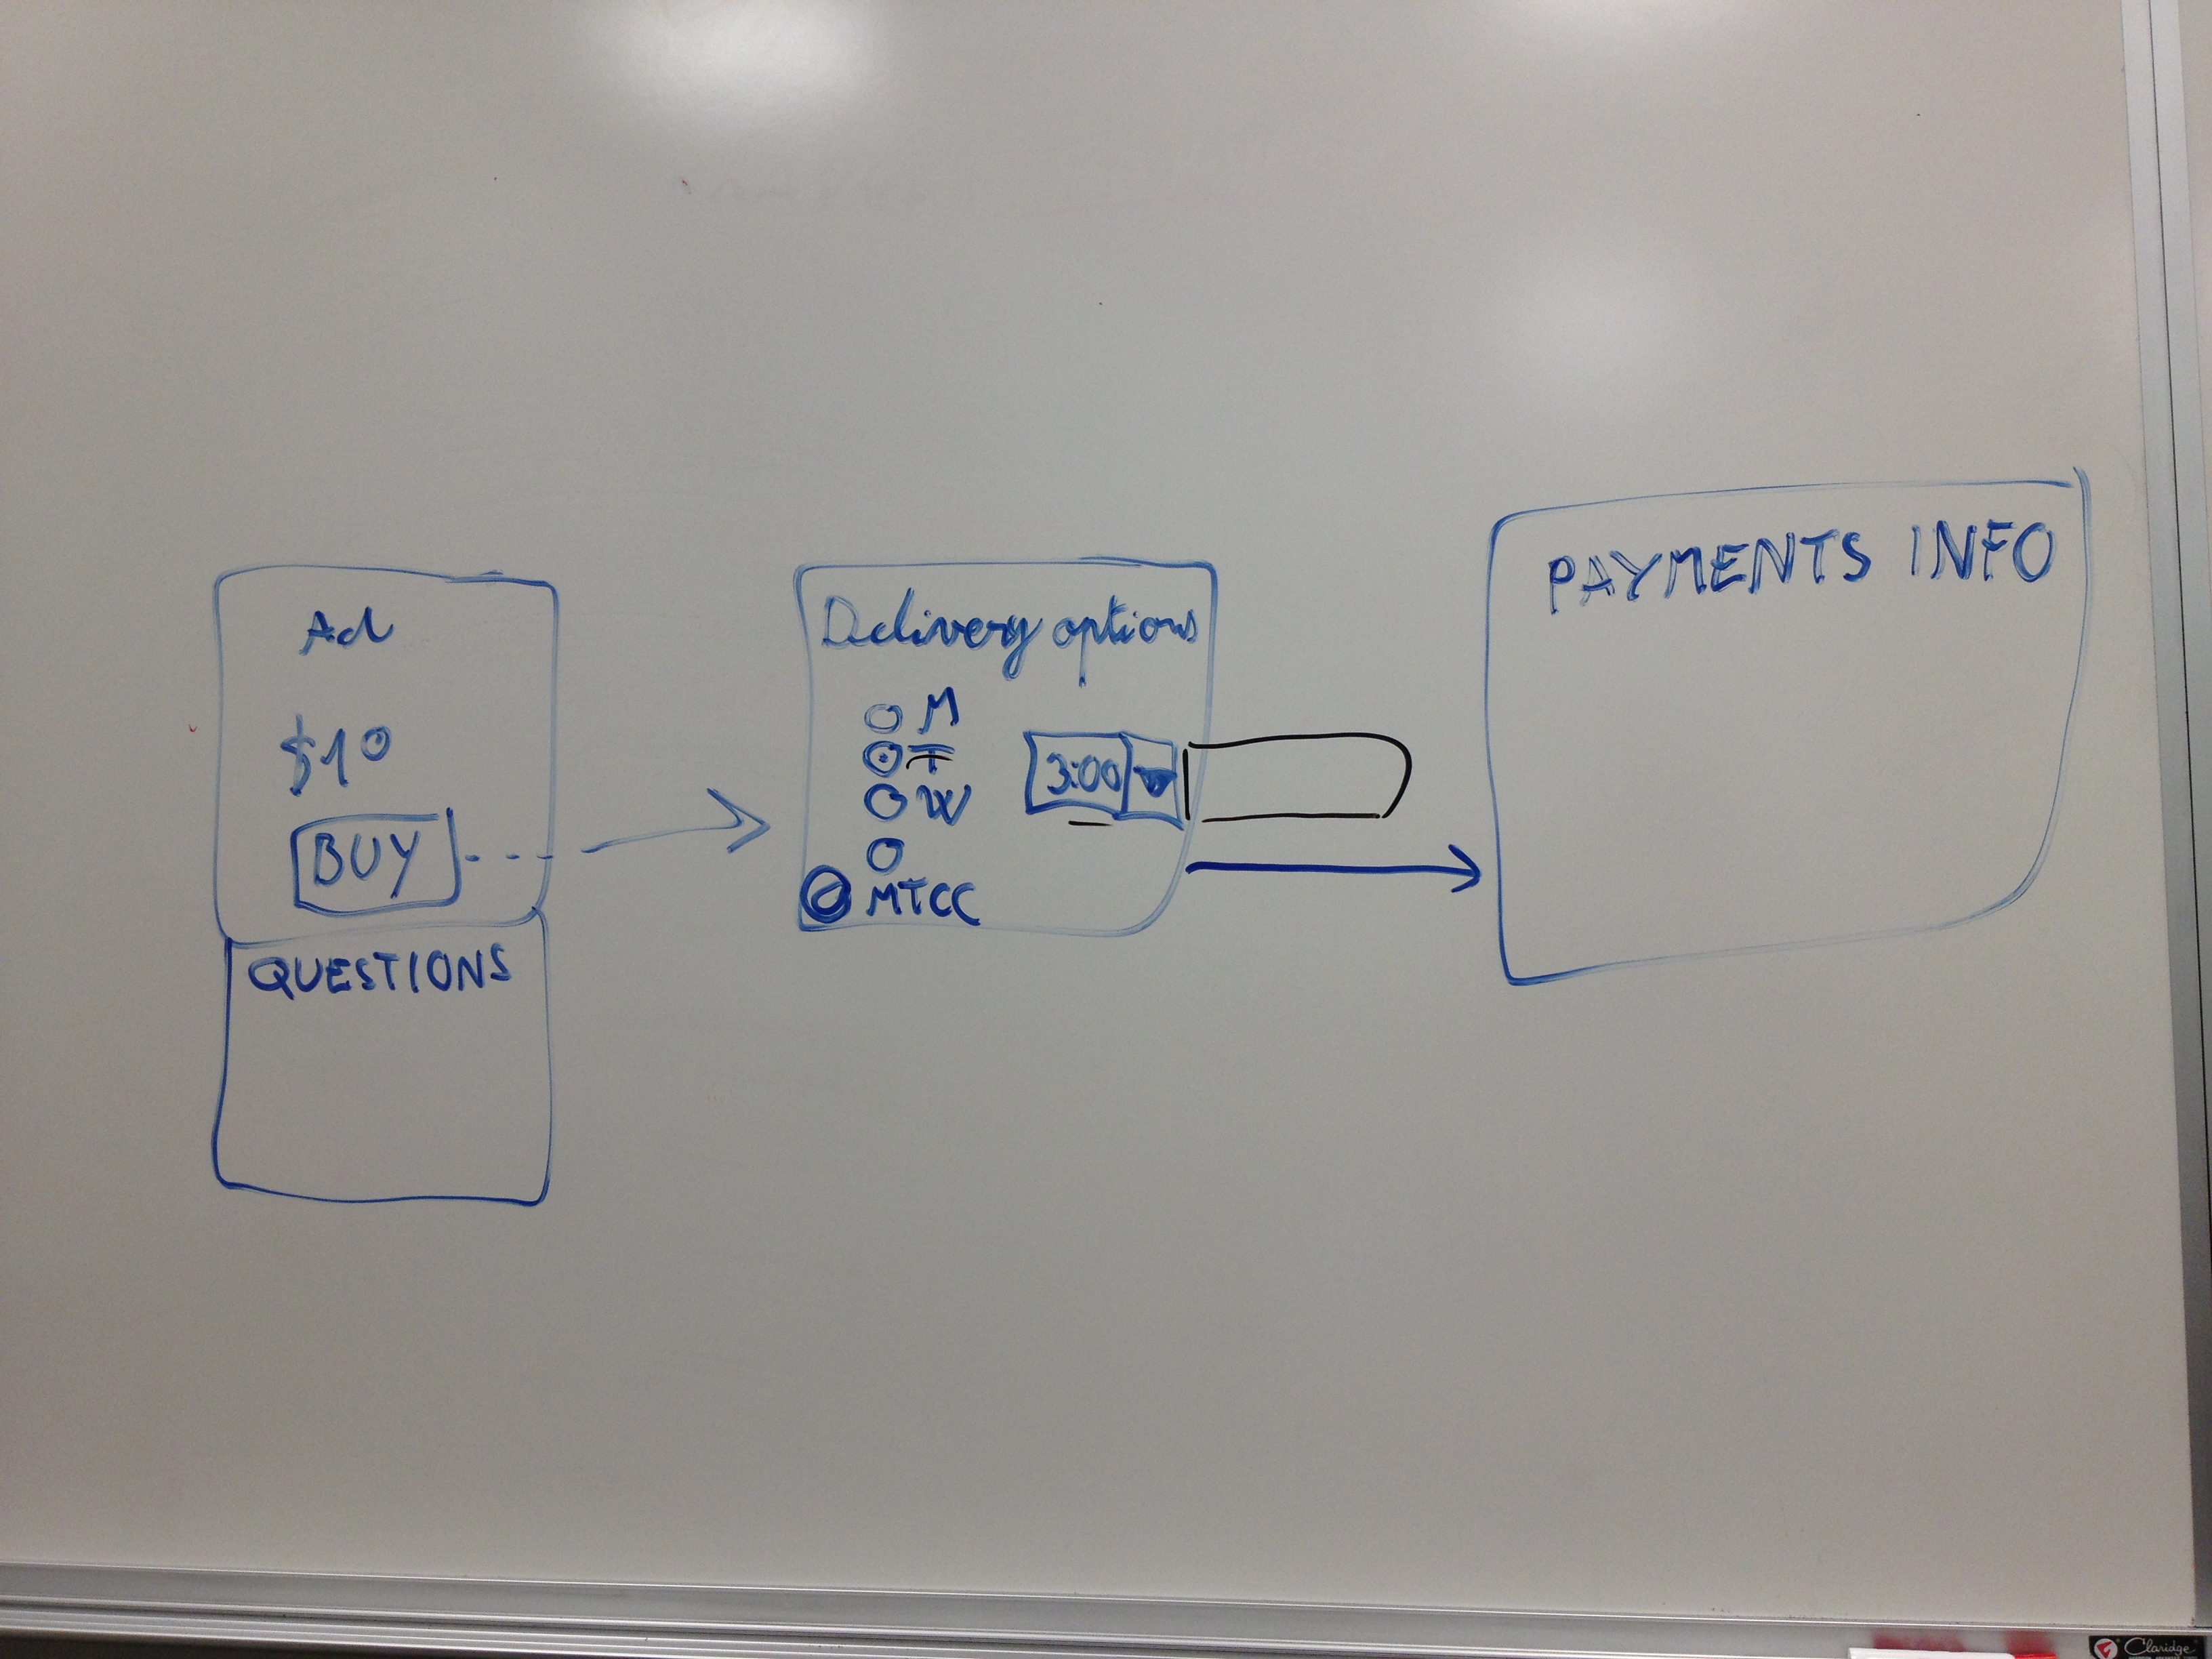 Ad
$10
BUY
QUESTIONS
Delivery options
M
T
W
3:00
MTCC
PAYMENTS INFO
Claridge